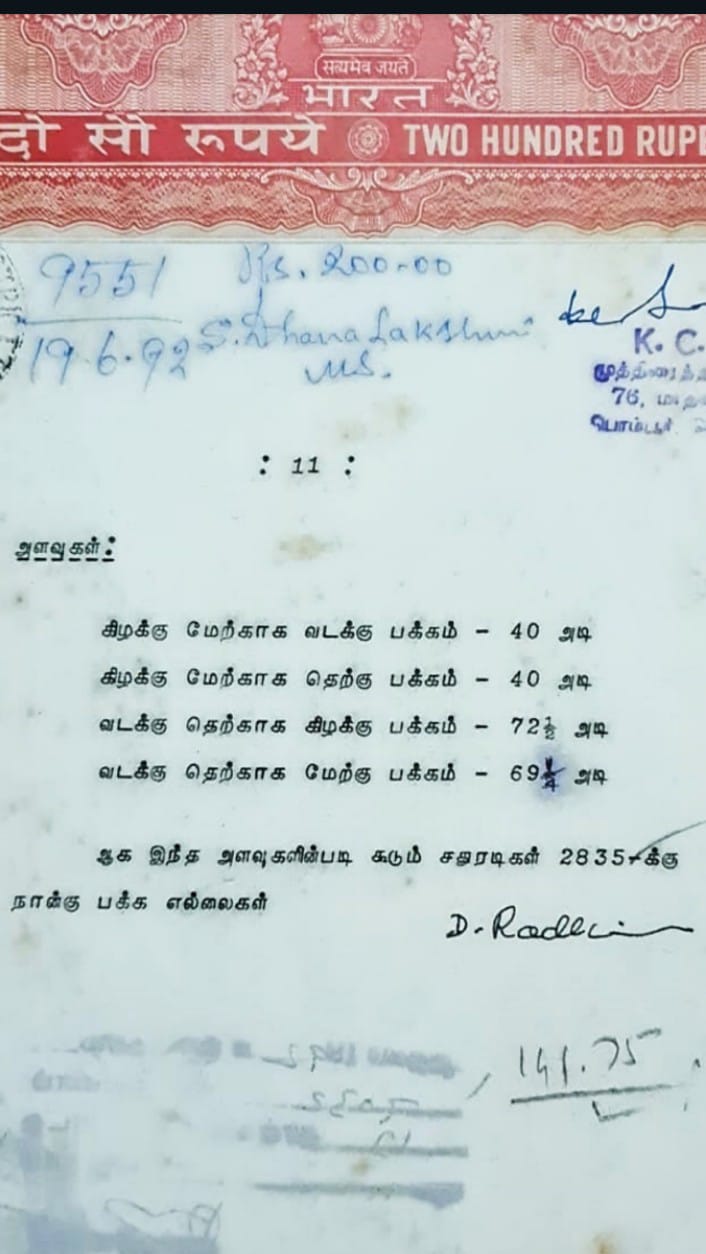 सत्यमेव जयते
भारत
दो सौ रूपये TWO HUNDRED RUPE
9551 Rs. 200-00
19.6.92 S. Dhana Lakshmi
Ms.
K. C.
முத்திரைத்
76,
: 11 :
அளவுகள்:
கிழக்கு மேற்காக வடக்கு பக்கம் - 40 அடி
கிழக்கு மேற்காக தெற்கு பக்கம் - 40 அடி
வடக்கு தெற்காக கிழக்கு பக்கம் - 72½ அடி
வடக்கு தெற்காக மேற்கு பக்கம் - 69¼ அடி
ஆக இந்த அளவுகளின்படி கூடும் சதுரடிகள் 2835-க்கு
நான்கு பக்க எல்லைகள்
D. Radhi
141.75